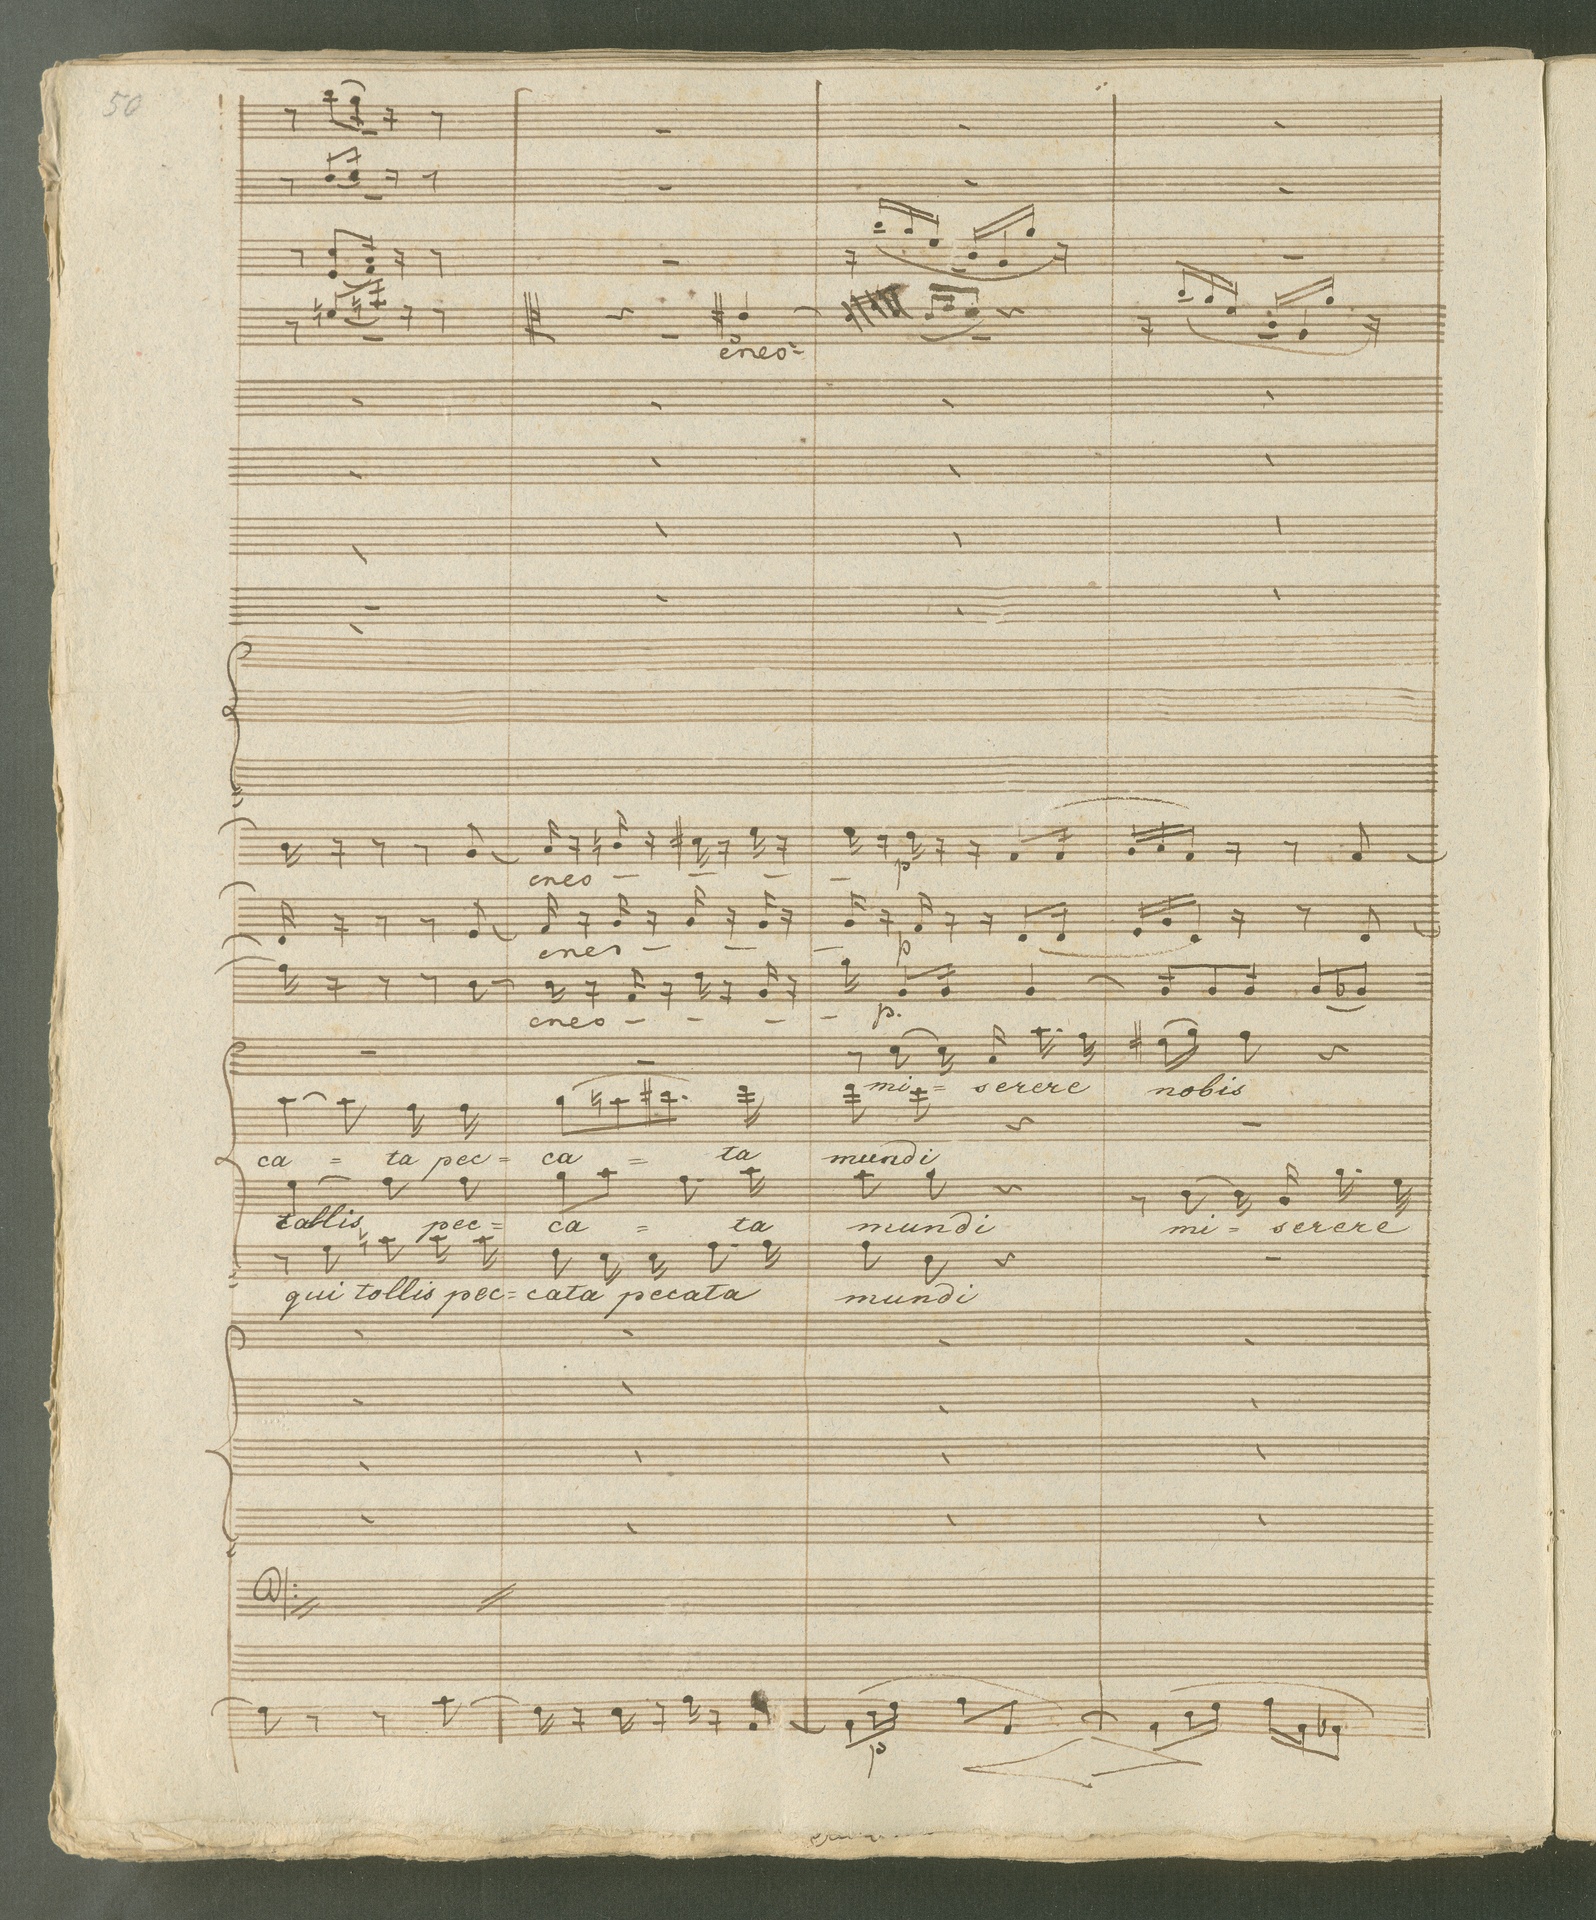 50
cres
cres
p
cres
p
cres
p.
mi = serere nobis
ca = ta pec = ca = ta mundi
tollis pec = ca = ta mundi mi = serere
qui tollis pec = cata pecata mundi
p